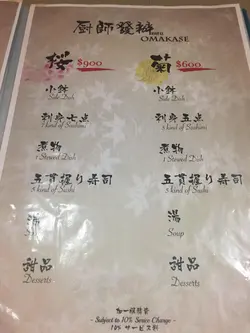 廚師發辦 MENU
OMAKASE
桜 $900
菊 $600
小鉢 小鉢
Side Dish Side Dish
刺身七点 刺身五点
7 kind of Sashimi 5 kind of Sashimi
煮物 煮物
1 Stewed Dish 1 Stewed Dish
五貫握り寿司 五貫握り寿司
5 kind of Sushi 5 kind of Sushi
湯 湯
Soup
甜品 甜品
Desserts Desserts
加一服務費
- Subject to 10% Service Charge -
10% サービス料